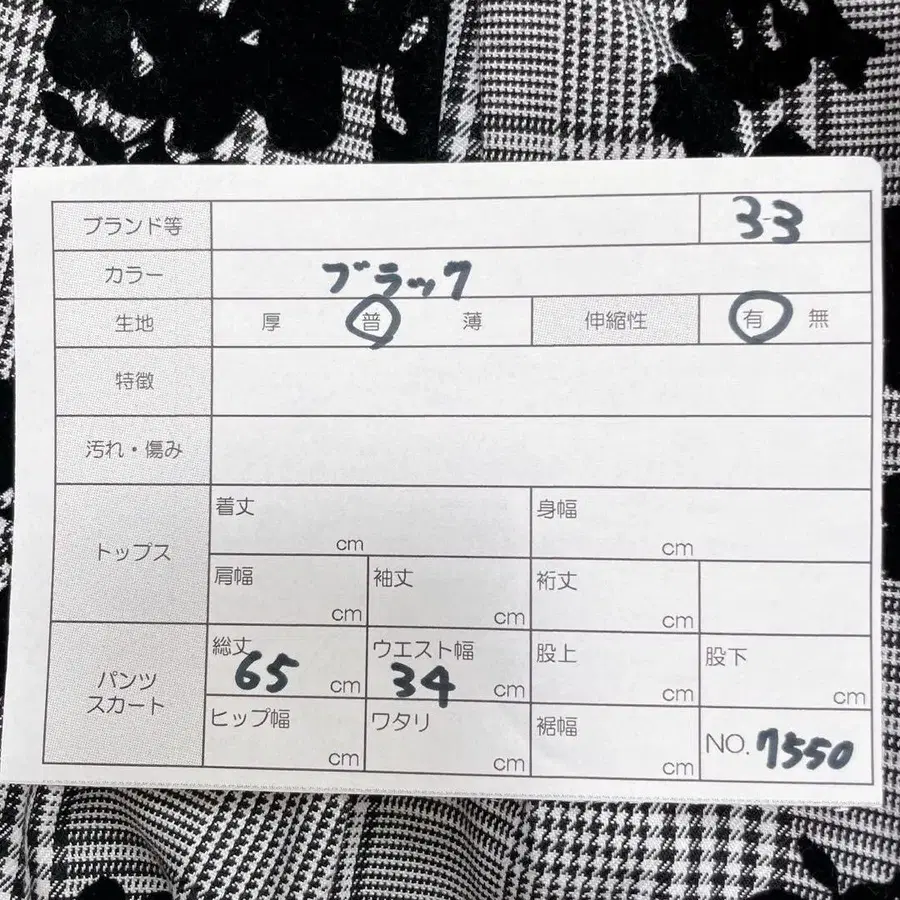 ブランド等 3-3
カラー ブラック
生地 厚 普 薄 伸縮性 有 無
特徴
汚れ・傷み
トップス
着丈 cm 身幅 cm
肩幅 cm 袖丈 cm 裄丈 cm
パンツ
スカート
総丈 65 cm ウエスト幅 34 cm 股上 cm 股下 cm
ヒップ幅 cm ワタリ cm 裾幅 cm NO. 7550